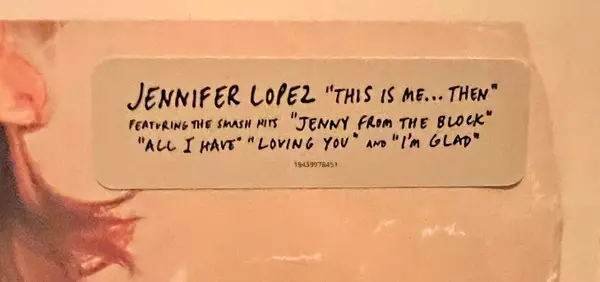 JENNIFER LOPEZ "THIS IS ME... THEN"
FEATURING THE SMASH HITS "JENNY FROM THE BLOCK"
"ALL I HAVE" "LOVING YOU" AND "I'M GLAD"
19439978451